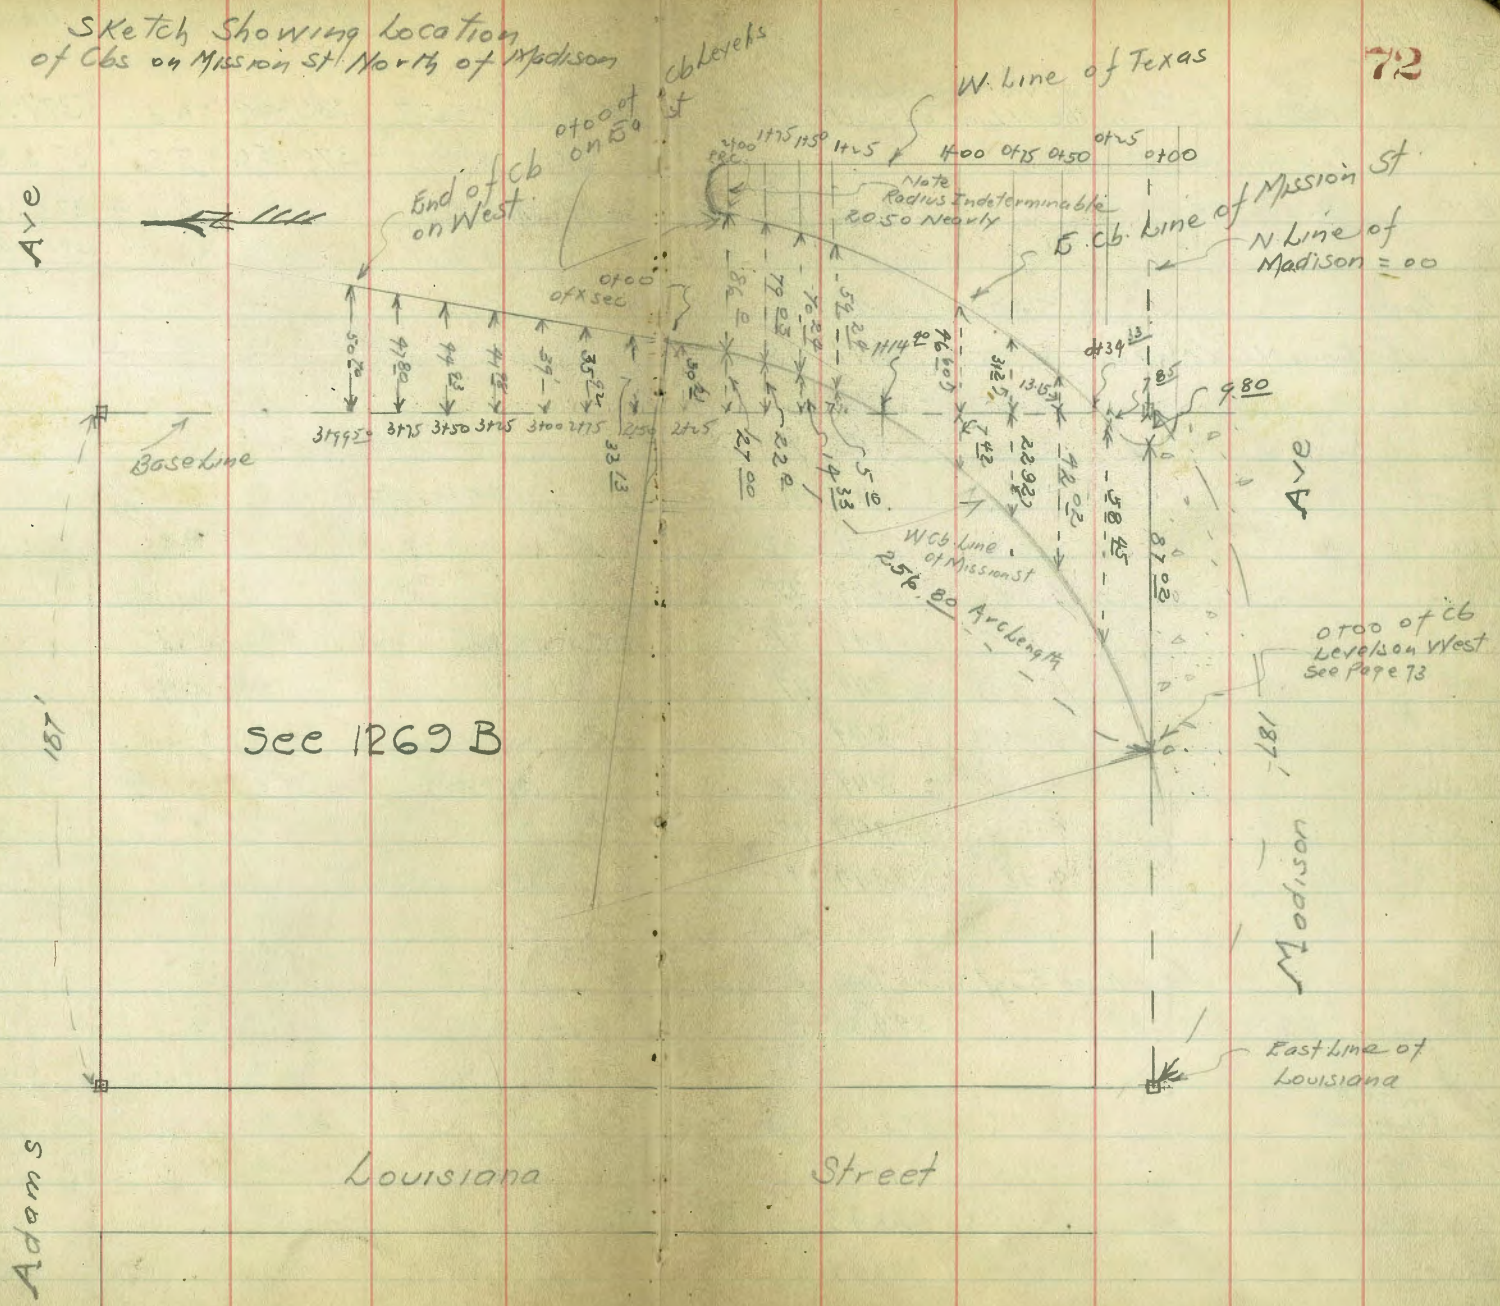 Sketch Showing Location
of Cbs on Mission St North of Madison
72
Cb Levels
st
0+00 of
on Ea
W. Line of Texas
2+00
1+75
1+50
1+25
1+00
0+75
0+50
0+25
0+00
End of Cb
on West
Note
Radius Indeterminable
20.50 Nearly
E. Cb. Line of Mission St
N Line of
Madison = 00
0+00
of x sec
Ave
50 70
47 80
44 83
41 98
39'
35 92
30 91
79 03
70 29
59 29
1+14 40
46 60
31 25
13.15
0+39 13
7 85
9.80
3+99 50
3+75
3+50
3+25
3+00
2+75
2+50
2+25
Base Line
33 13
27 00
22 12
14 33
5 10
7 42
22 92
42 02
58 45
87 02
Ave
W Cb Line
of Mission St
256.80 Arc Length
0+00 of Cb
Levels on West
See Page 73
187'
See 1269 B
187'
Madison
East Line of
Louisiana
Adams
Louisiana Street